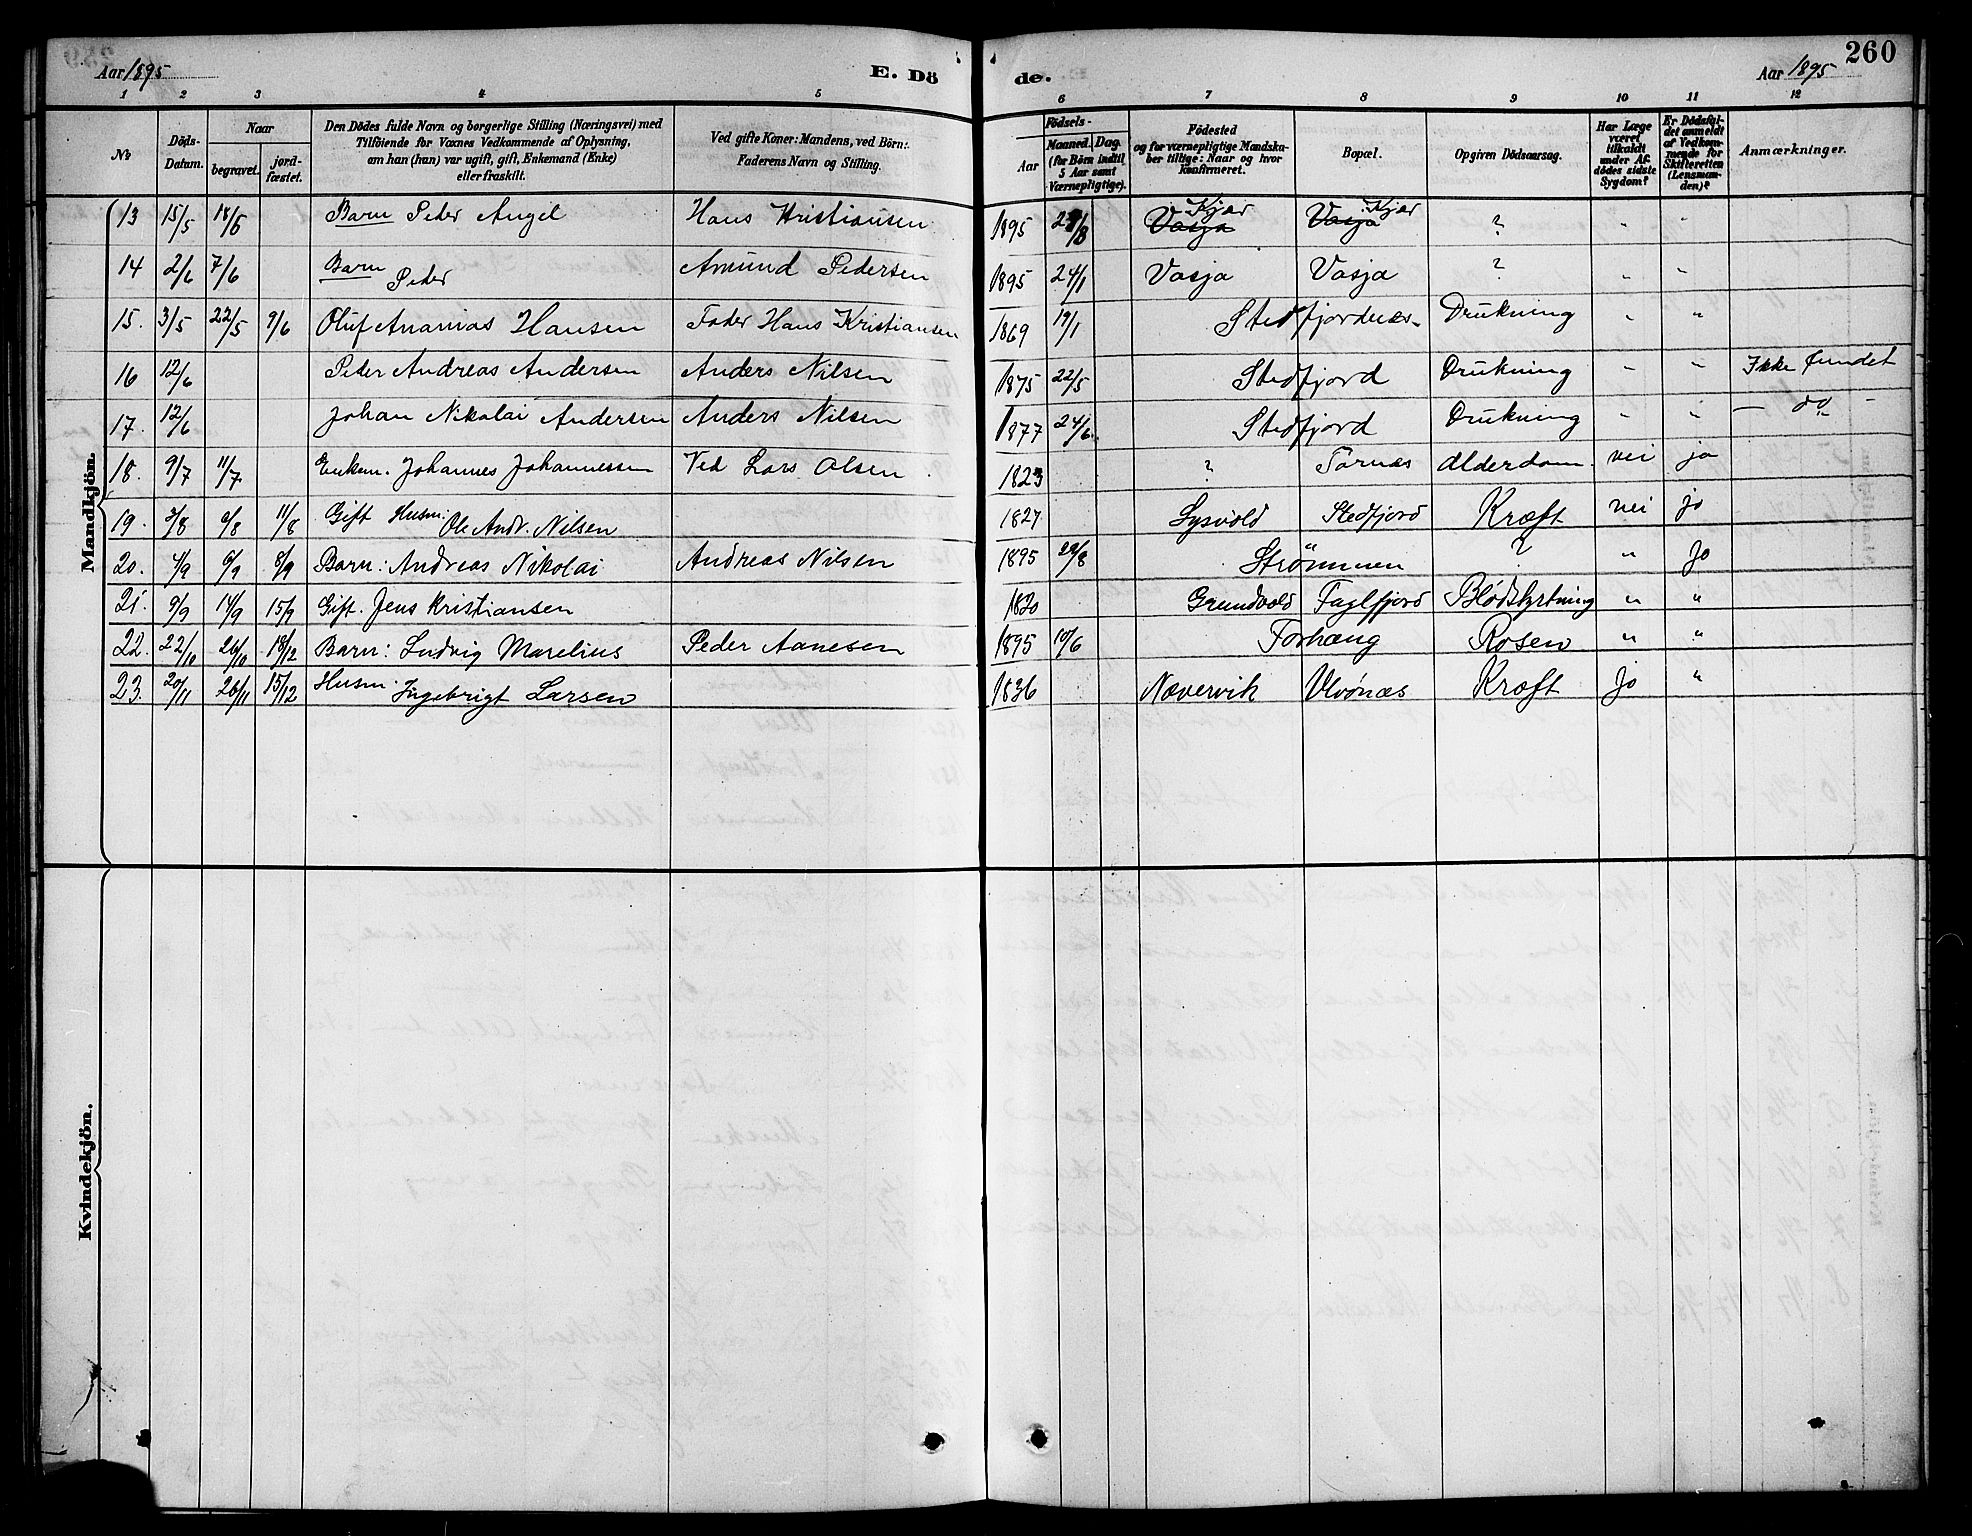 260
Aar 1895
E. Dö
de.
Aar 1895
1 2 3 4 5 6 7 8 9 10 11 12
No
Döds-
Datum.
Naar
begravet.
jord-
fæstet.
Den Dödes fulde Navn og borgerlige Stilling (Næringsvei) med
Tilföiende for Voxnes Vedkommende af Oplysning,
om han (hun) var ugift, gift, Enkemand (Enke)
eller fraskilt.
Ved gifte Koner: Mandens, ved Börn:
Faderens Navn og Stilling.
Födsels-
Aar
Maaned. Dag.
(for Börn indtil
5 Aar samt
Værnepligtige).
Födested
og for værnepligtige Mandska-
ber tillige: Naar og hvor
konfirmeret.
Bopæl.
Opgiven Dödsaarsag.
Har Læge
været
tilkaldt
under Af-
dödes sidste
Sygdom?
Er Dödsfal-
det anmeldt
af Vedkom-
mende for
Skifteretten
(Lensman-
den)?
Anmærkninger.
Mandkjön.
13 15/5 18/5 Barn Peder Angel Hans Kristiansen 1895 Vasja Kjær Vasja Kjær ? " "
14 2/6 7/6 Barn Peder Amund Pedersen 1895 24/1 Vasja Vasja ? " "
15. 3/5 22/5 9/6 Oluf Ananias Hansen Fader Hans Kristiansen 1869 19/1 Stedfjordnæs Drukning " "
16 12/6 Peter Andreas Andersen Anders Nilsen 1875 22/5 Stedfjord Drukning " " Ikke fundet
17. 12/6 Johan Nikolai Andersen Anders Nilsen 1877 24/6 Stedfjord Drukning " " — do —
18. 9/7 11/7 Enkem. Johannes Johannessen Ved Lars Olsen 1823 ? Tornæs Alderdom nei ja
19. 3/8 6/8 11/8 Gift Husm: Ole Andr. Nilsen 1827 Lysvold Stedfjord Kræft nei jo
20. 4/9 6/9 8/9 Barn: Andreas Nikolai Andreas Nilsen 1895 29/8 Strömmen ? " Jo
21. 9/9 14/9 15/9 Gift. Jens Kristiansen 1820 Grundvold Faglfjord Blödstyrtning " "
22. 22/10 26/10 18/12 Barn: Ludvig Marelius Peder Aanesen 1895 10/6 Forhæng Rosen " "
23. 20/11 26/11 15/12 Husm. Ingebrigt Larsen 1836 Nævervik Ulvönæs Kræft Jo "
Kvindekjön.